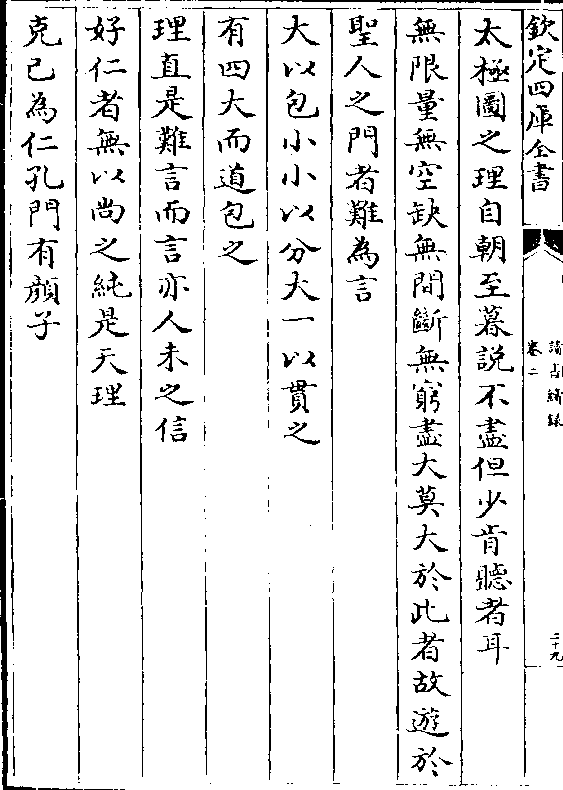 欽定四庫全書
讀書續錄
卷二
二十九
太極圖之理自朝至暮説不盡但少肯聽者耳
無限量無空缺無間斷無窮盡大莫大於此者故遊於
聖人之門者難為言
大以包小小以分大一以貫之
有四大而道包之
理直是難言而言亦人未之信
好仁者無以尚之純是天理
克己為仁孔門有顔子